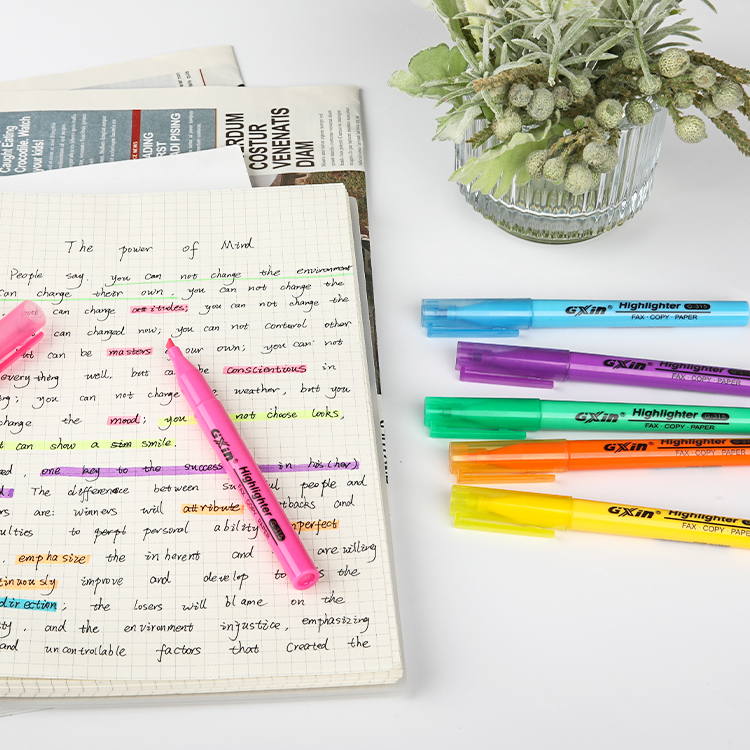 Caught Eating
Crocodile, Watch
your kids!
ADING
ADI PISING
ERDUM
COSTUR
VENENATIS
DIAM
The power of Mind
People say, you can not change the environment
can change their own, you can not change the
can change attitudes; you can not change the
can changed now; you can not control other
but can be masters our own; you can not
everything well, but can be conscientious in
; you can not change weather, but you
change the mood; you not choose looks,
t can show a smile.
, one key to the success in his(her)
. The difference between ful people and
rs are: winners will attribute tbacks and
ulties to personal ability, mperfect
, emphasize the inherent and are willing
tinuously improve and develop the
direction; the losers will blame on the
ty, and the environment injustice, emphasizing
and uncontrollable factors that created the
GXin Highlighter
GXin® Highlighter G-315
FAX · COPY · PAPER
GXin® Highlighter
FAX · COPY · PAPER
GXin® Highlighter G-315
FAX · COPY · PAPER
GXin® Highlighter
FAX · COPY · PAPER
GXin® Highlighter
FAX · COPY · PAPER